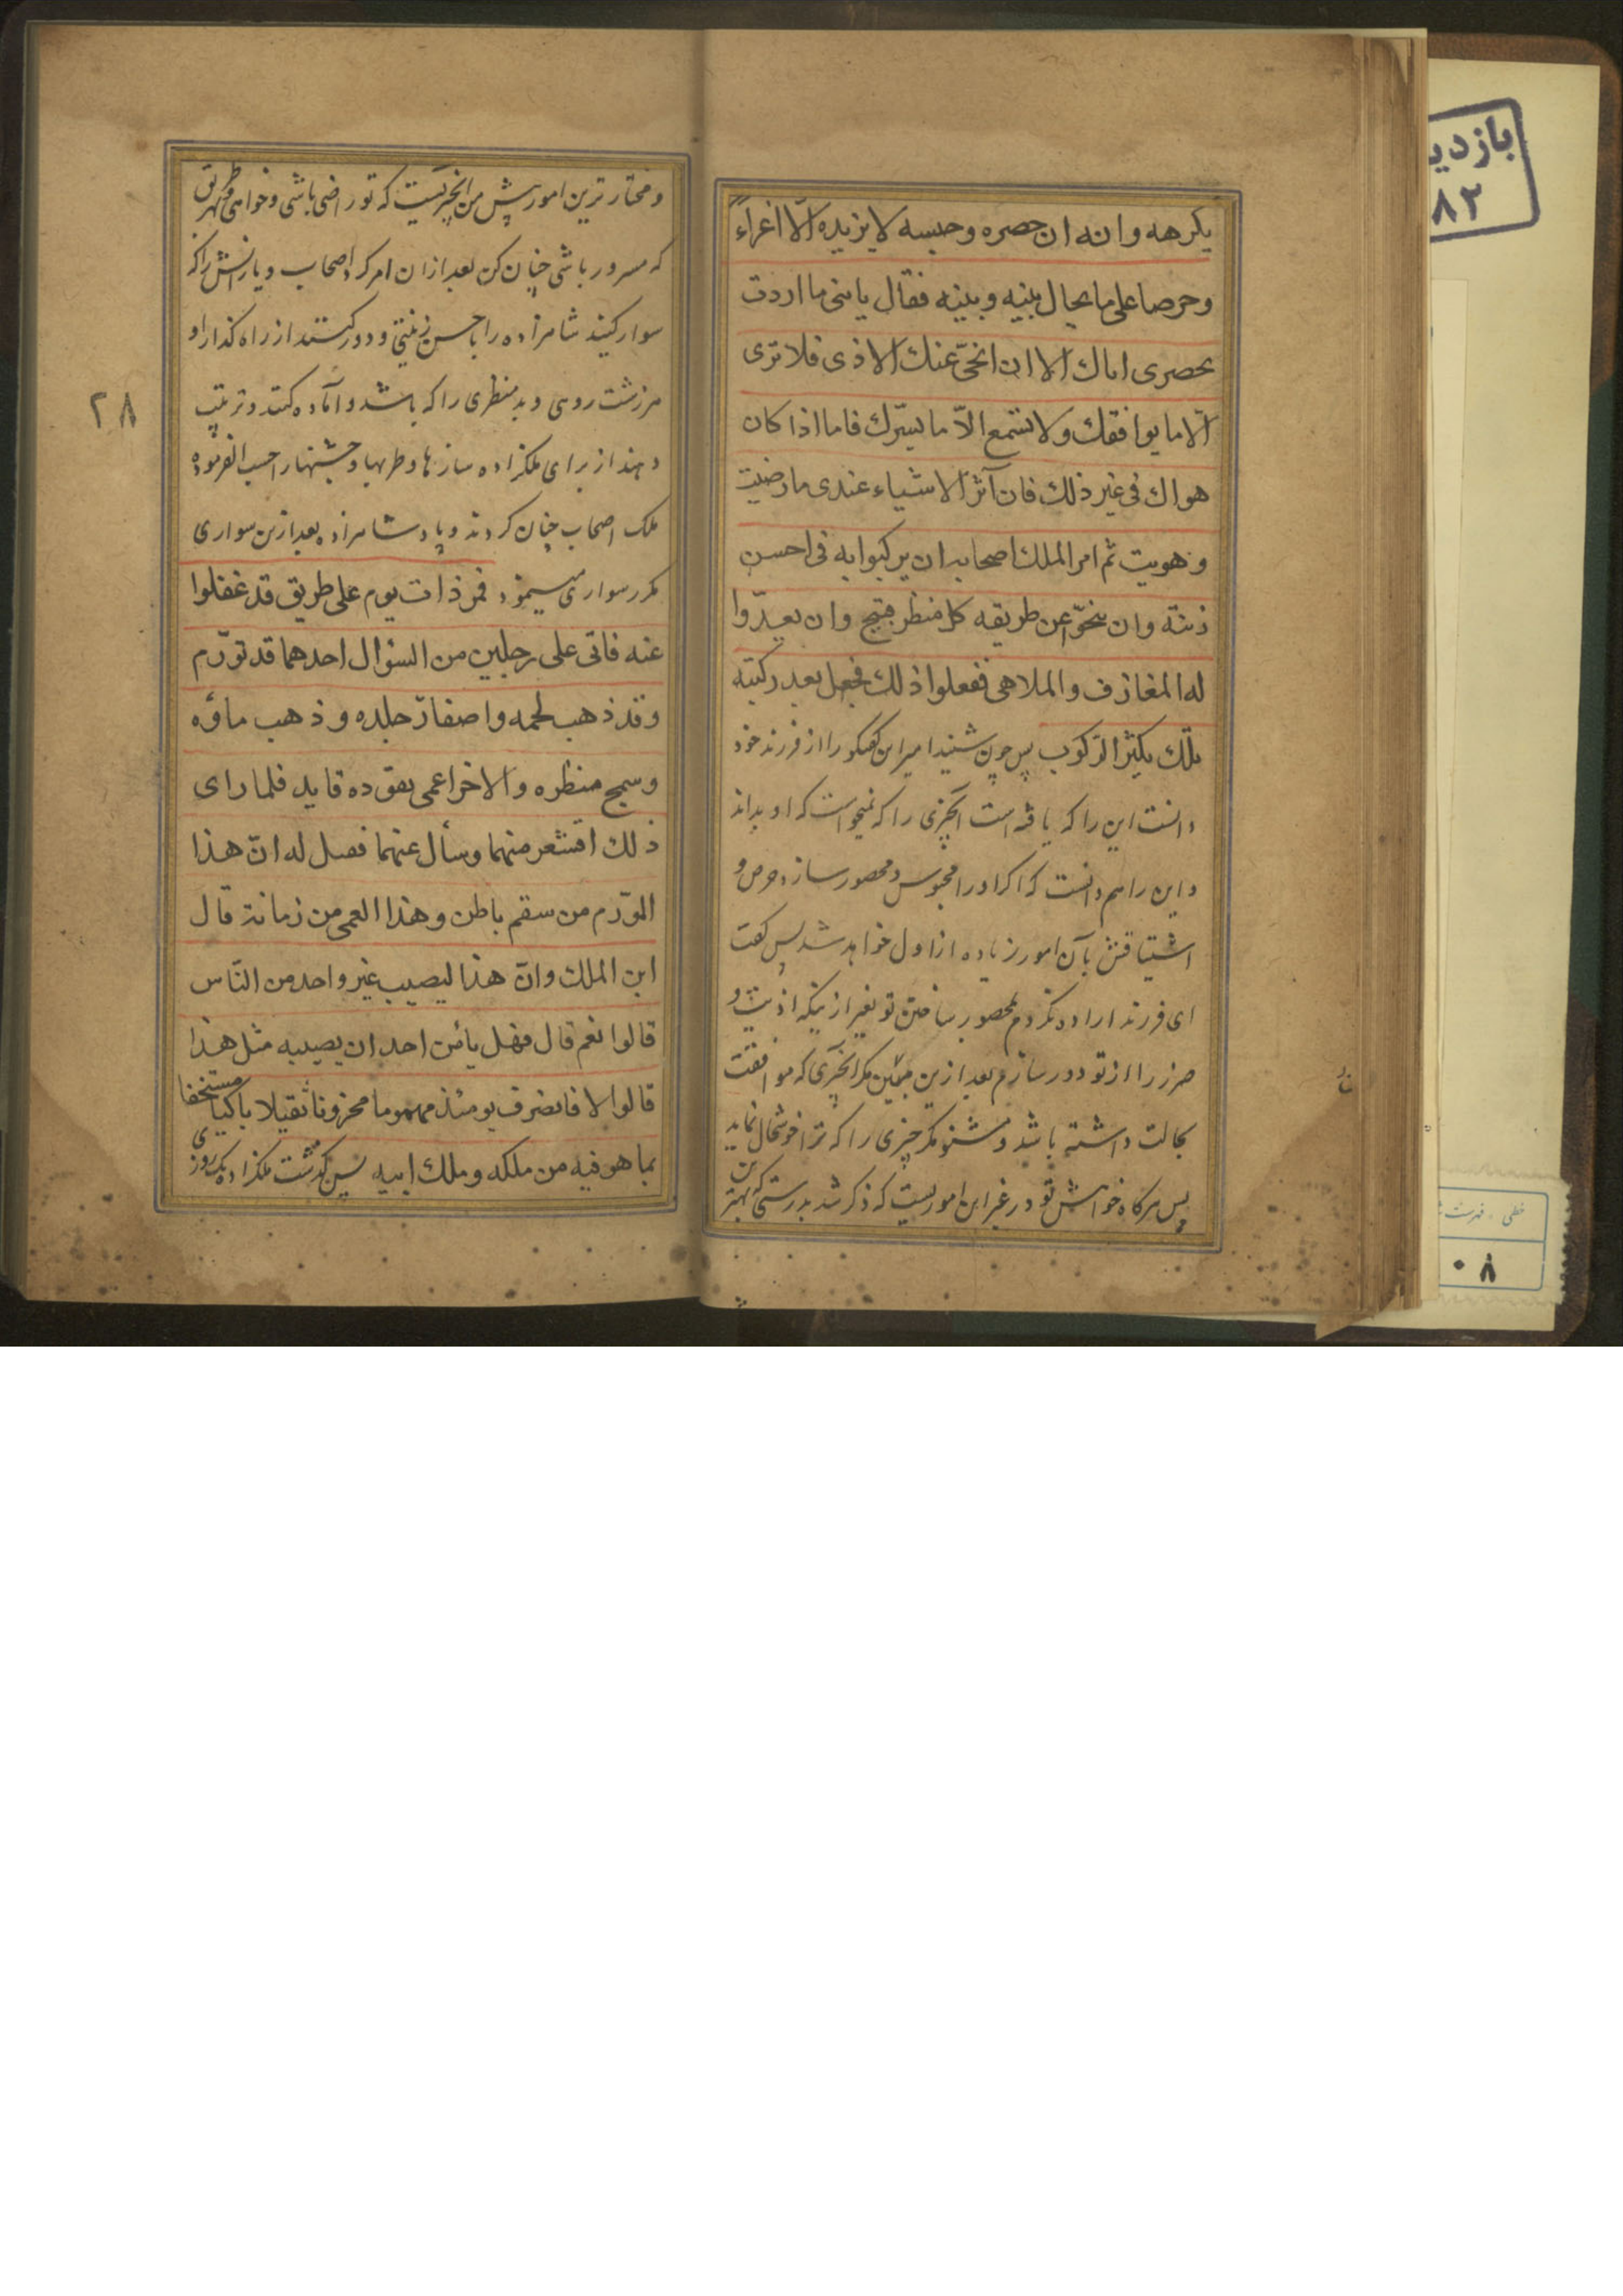 يكرهه وانه ان حصره وحبسه لا يزيده الّا اغراءً
وحرصا على ما يحال بينه وبينه فقال يا بنى ما اردت
بحصرى اياك الا ان انحّى عنك الاذى فلا ترى
الّا ما يوافقك ولا تستمع الّا ما يسرّك فاما اذا كان
هواك فى غير ذلك فان آثر الاشياء عندى ما رضيت
وهويت ثم امر الملك اصحابه ان يركبوا به فى احسن
زينة وان ينحّوا عن طريقه كل منظر قبيح وان يعدّوا
له المغازف والملاهى ففعلوا ذلك فجعل بعد ركبته
تلك يكثر الركوب پس چون شنيد امير اين كفتكو را از فرزند خود
دانست اين را كه يافته است آنچيزى را كه نميخواست كه او بداند
و اين را هم دانست كه اكر او را محبوس و محصور سازد حرص و
اشتياقش بآن امور زياده از اول خواهد شد پس كفت
اى فرزند اراده نكردم بمحصور ساختن تو بغير از ينكه اذيت و
ضرر را از تو دور سازم بعد ازين مبين مكر آنچيزى كه موافقت
بحالت داشته باشد و مشنو مكر چيزى را كه ترا خوشحال نمايد
پس هركاه خواهش تو در غير اين امور يست كه ذكر شد بدرستى كه بهترين
بازدي
٨٢
خطى . فهرست
٠٨
و مختار ترين امور پيش من آنچيز يست كه تو راضى باشى و خواهى و بهر طريق
كه مسرور باشى چنان كن بعد از ان امر كرد اصحاب و يارانش را كه
سوار كنيد شاهزاده را باحسن زينتى و دور كنند از راه كذار او
هر زشت روى و بد منظرى را كه باشد و آماده كنند و ترتيب
دهند از براى ملكزاده سازها و طربها و جشنها را حسب الفرموده
ملك اصحاب چنان كردند و پادشاهزاده بعد ازين سوارى
مكرر سوارى مينمود فمر ذات يوم على طريق قد غفلوا
عنه فاتى على رجلين من السؤال احدهما قد تورّم
وقد ذهب لحمه واصفارّ جلده وذهب ماؤه
وسمج منظره والاخر اعمى يقوده قايد فلما راى
ذلك اقشعر منهما وسأل عنهما فصل له انّ هذا
المورّم من سقم باطن وهذا العمى من زمانة قال
ابن الملك وانّ هذا ليصيب غير واحد من النّاس
قالوا نعم قال فهل يأمن احد ان يصيبه مثل هذا
قالوا لا فانصرف يومئذ مهموما محزونا ثقيلا باكيا مستخفا
بما هو فيه من ملكه وملك ابيه پس كذشت ملكزاده يك روزى
٢٨